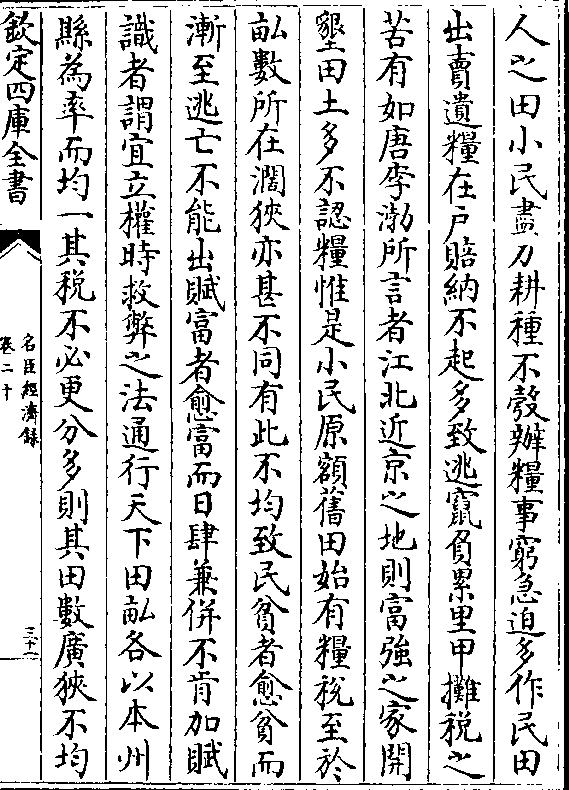 人之田小民盡力耕種不彀辦糧事窮急迫多作民田
出賣遺糧在戶賠納不起多致逃竄負累里甲攤稅之
苦有如唐李渤所言者江北近京之地則富強之家開
墾田土多不認糧惟是小民原額舊田始有糧稅至於
畝數所在濶狹亦甚不同有此不均致民貧者愈貧而
漸至逃亡不能出賦富者愈富而日肆兼併不肯加賦
識者謂宜立權時救弊之法通行天下田畝各以本州
縣為率而均一其稅不必更分多則其田數廣狹不均
欽定四庫全書
名臣經濟錄
卷二十
三十一